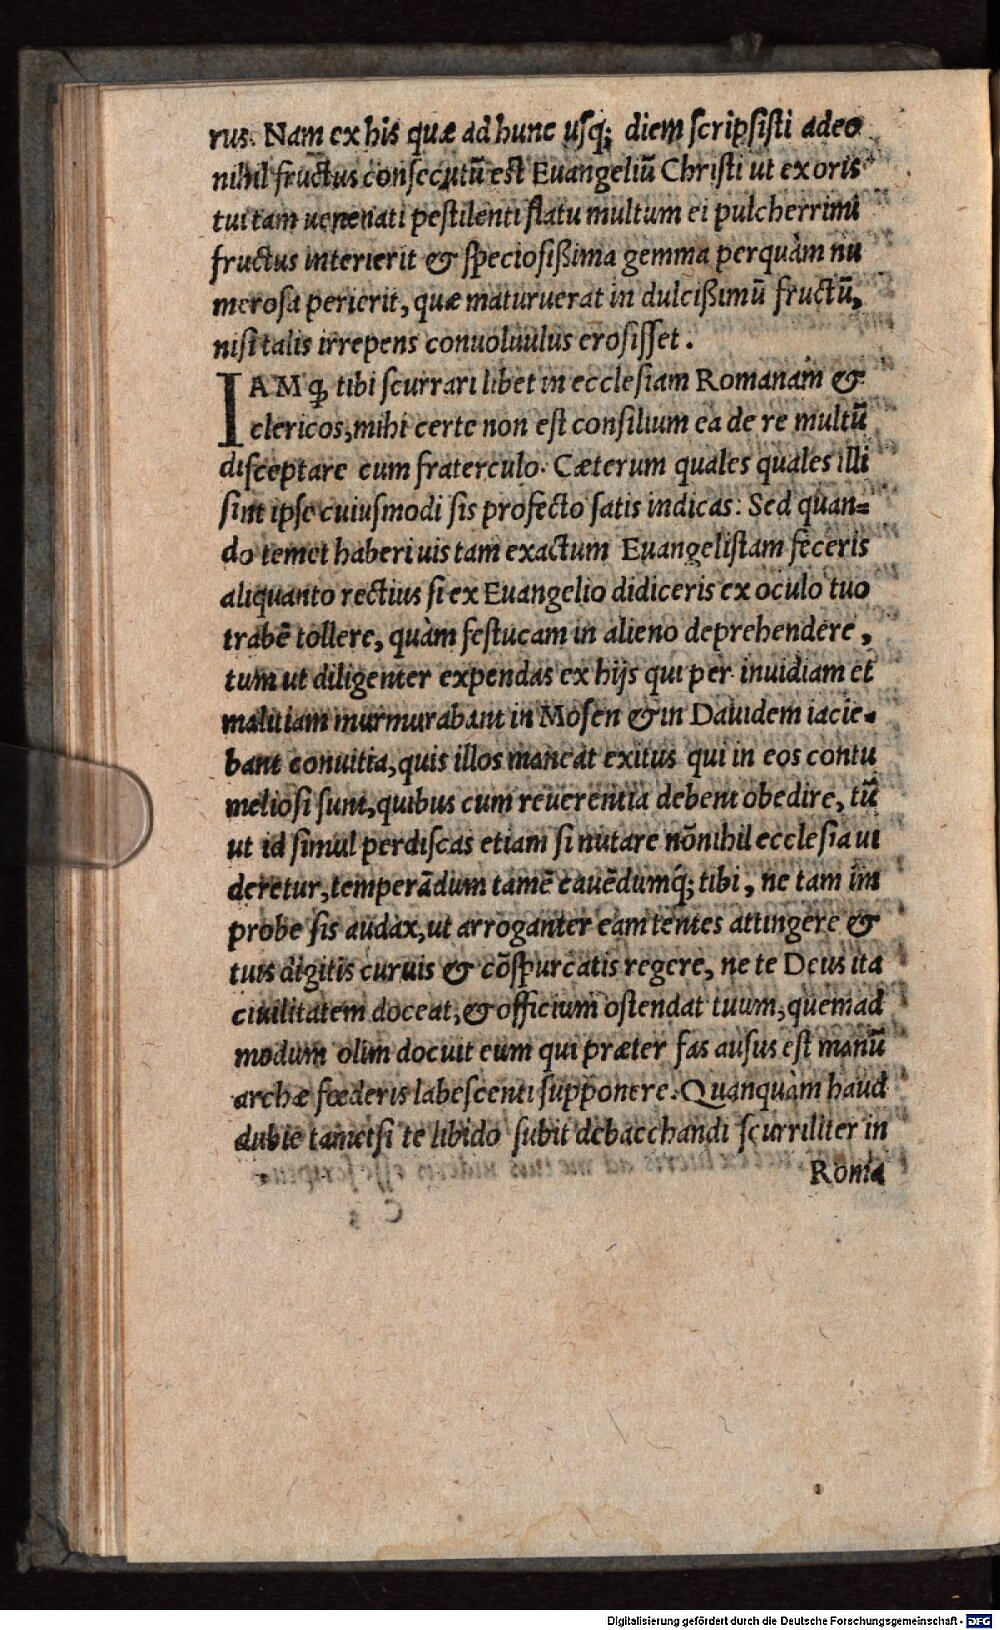 rus. Nam ex his quæ ad hunc usq; diem scripsisti adeo
nihil fructus consecutū est Euangeliū Christi ut ex oris
tui tam uenenati pestilenti flatu multum ei pulcherrimi
fructus interierit & speciosißima gemma perquàm nu
merosa perierit, quæ maturuerat in dulcißimū fructū,
nisi talis irrepens conuoluulus erosisset.
IAMq́ tibi scurrari libet in ecclesiam Romanam &
clericos, mihi certe non est consilium ea de re multū
disceptare cum fraterculo. Cæterum quales quales illi
sint ipse cuiusmodi sis profecto satis indicas: Sed quan=
do temet haberi uis tam exactum Euangelistam feceris
aliquanto rectius si ex Euangelio didiceris ex oculo tuo
trabē tollere, quàm festucam in alieno deprehendere,
tum ut diligenter expendas ex hijs qui per inuidiam et
malitiam murmurabant in Mosen & in Dauidem iacie=
bant conuitia, quis illos maneat exitus qui in eos contu
meliosi sunt, quibus cum reuerentia debent obedire, tū
ut id simul perdiscas etiam si nutare nōnihil ecclesia ui
deretur, temperādum tamē cauēdumq́; tibi, ne tam im
probe sis audax, ut arroganter eam tentes attingere &
tuis digitis curuis & cōspurcatis regere, ne te Deus ita
ciuilitatem doceat, & officium ostendat tuum, quemad
modum olim docuit eum qui præter fas ausus est manū
archæ fœderis labescenti supponere. Quanquàm haud
dubie tametsi te libido subit debacchandi scurriliter in
Roma
Digitalisierung gefördert durch die Deutsche Forschungsgemeinschaft - DFG